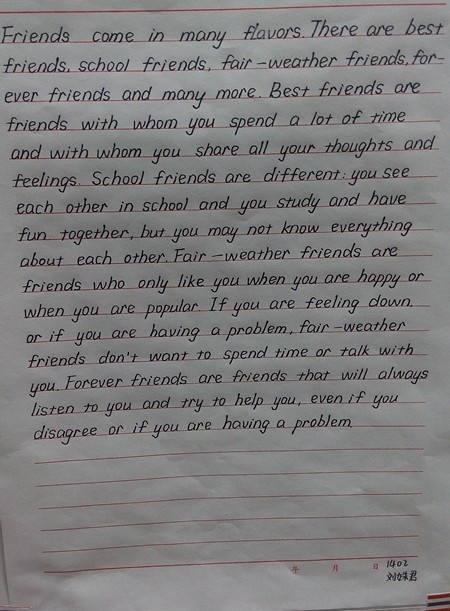 Friends come in many flavors. There are best
friends, school friends, fair-weather friends, for-
ever friends and many more. Best friends are
friends with whom you spend a lot of time
and with whom you share all your thoughts and
feelings. School friends are different: you see
each other in school and you study and have
fun together, but you may not know everything
about each other. Fair-weather friends are
friends who only like you when you are happy or
when you are popular. If you are feeling down.
or if you are having a problem, fair-weather
friends don't want to spend time or talk with
you. Forever friends are friends that will always
listen to you and try to help you, even if you
disagree or if you are having a problem.
年 月 日 1402
刘姝君